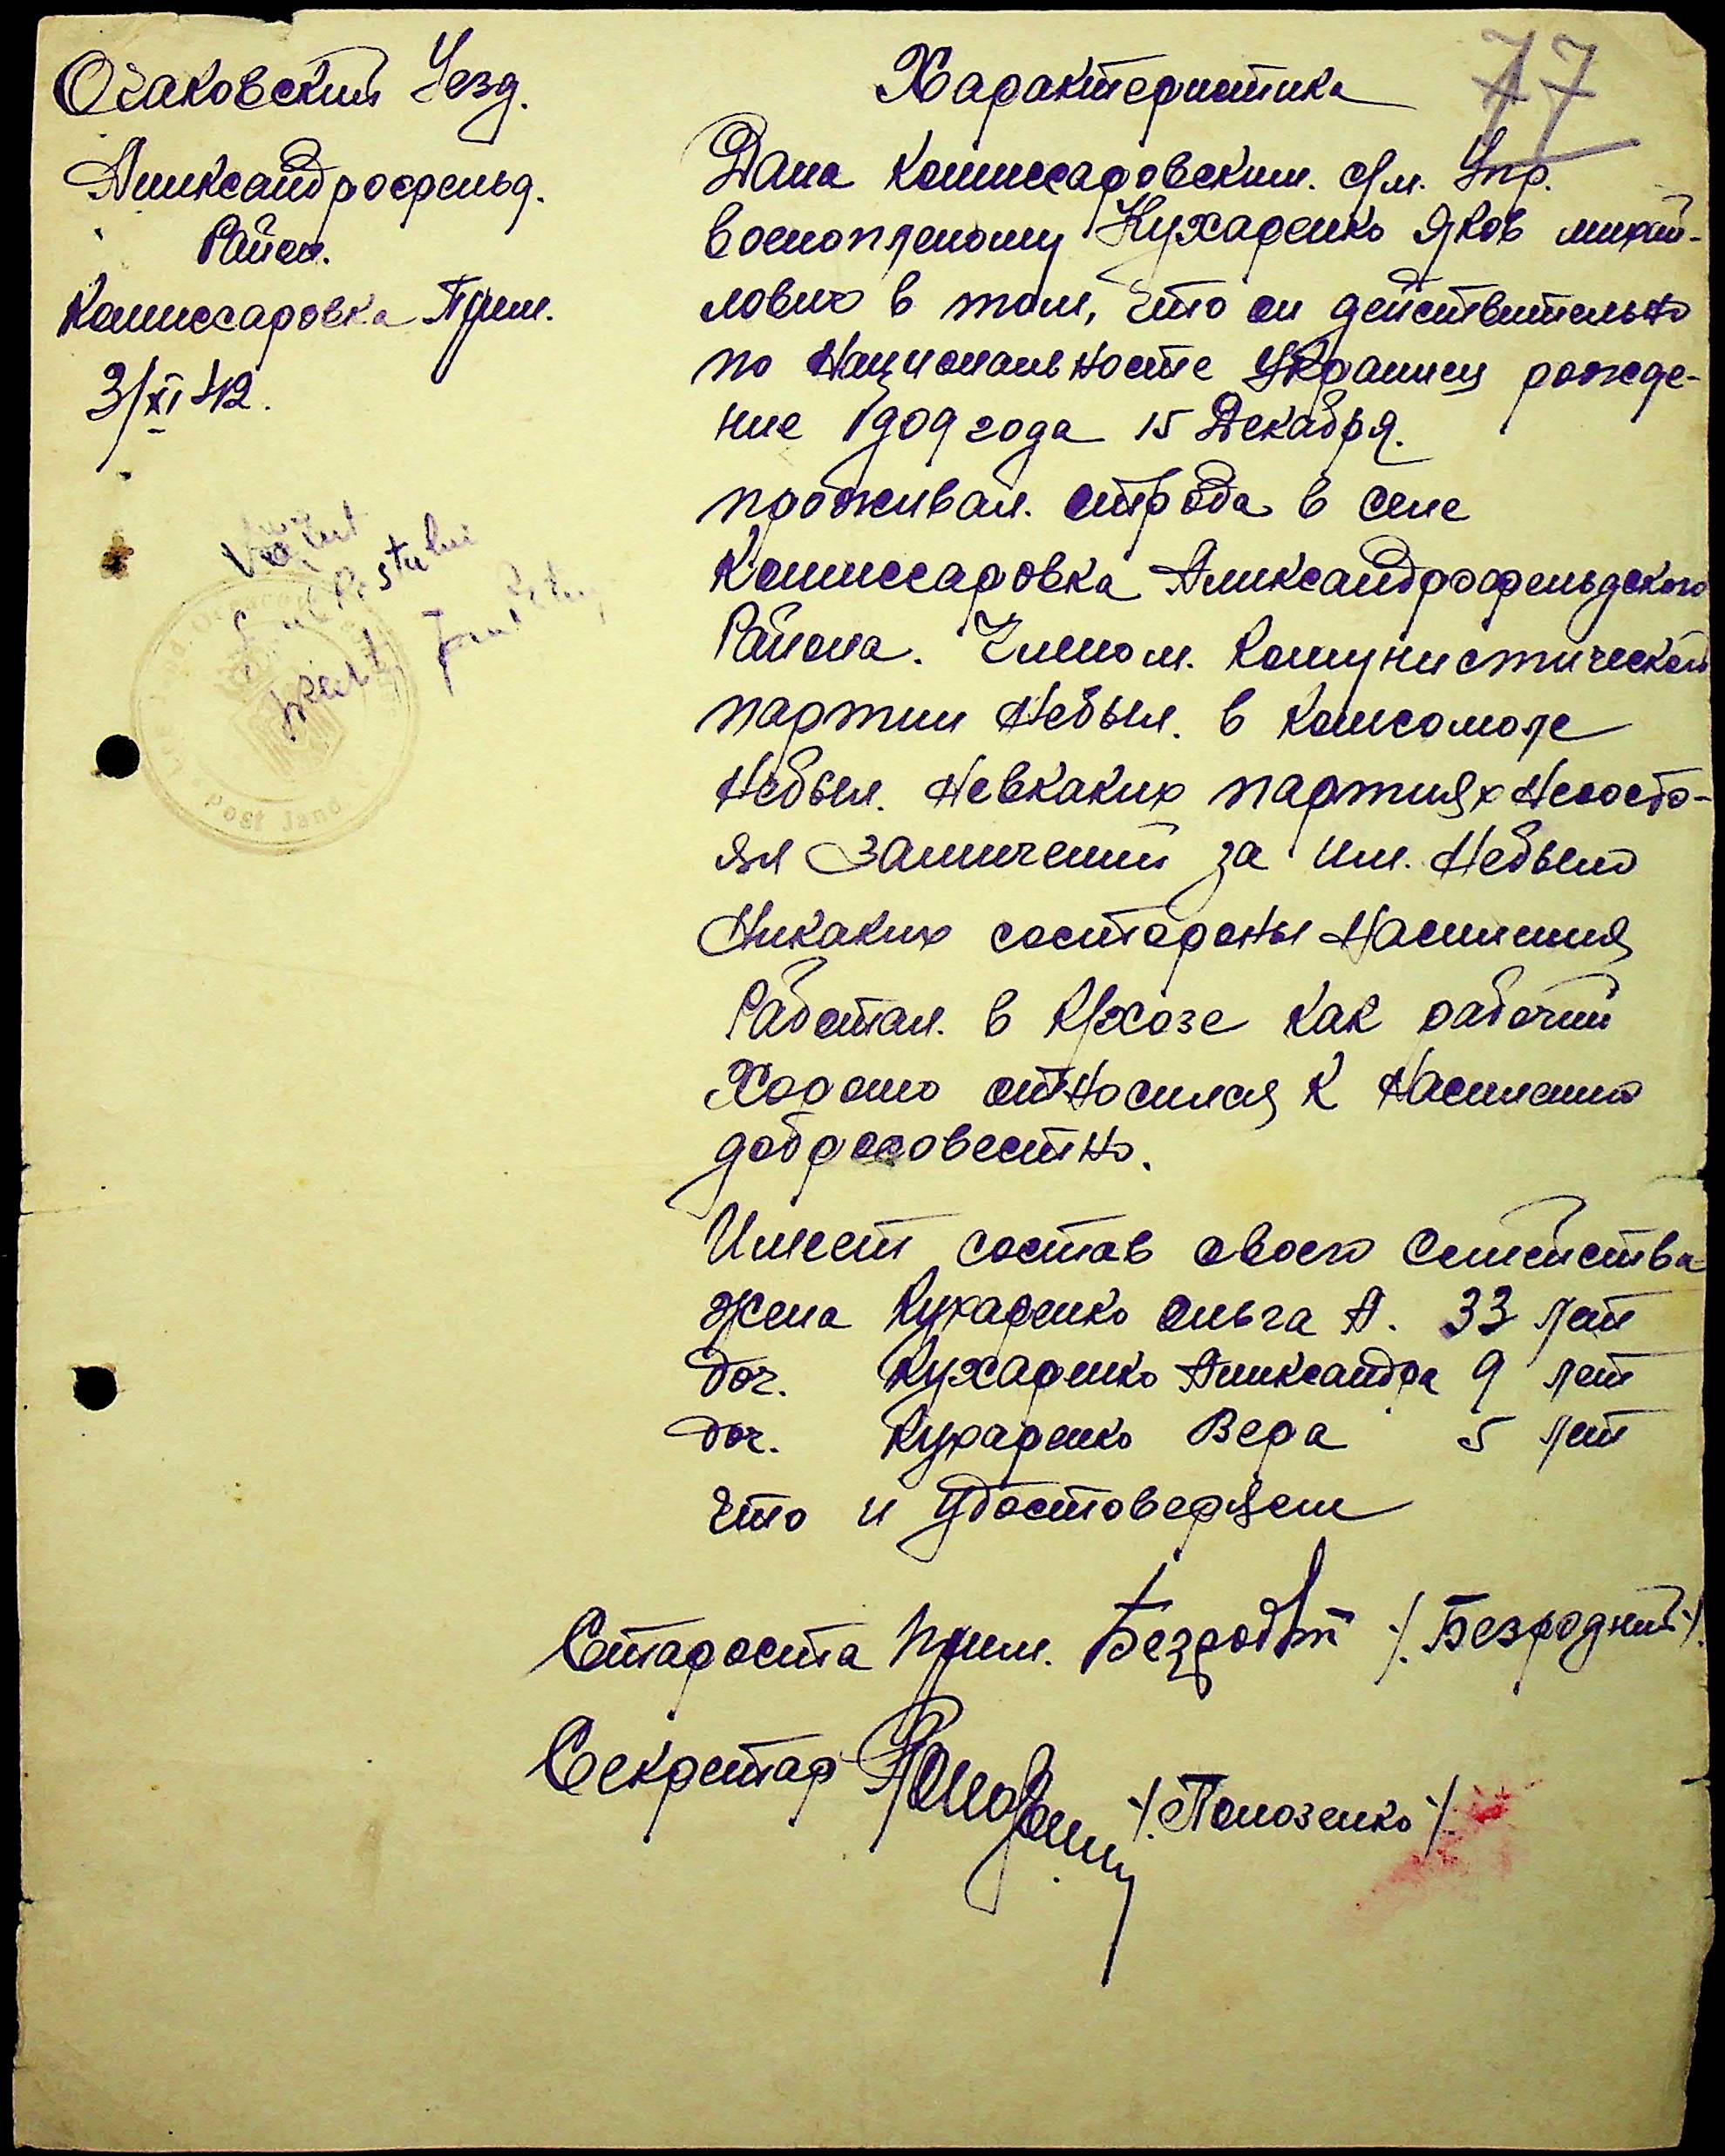 77
Очаковский Уезд.
Аликсандрофельд.
Район.
Комиссаровка Прим.
3/XI 42.
Характеристика
Дана Комиссаровским. См. Упр.
военопленому Кухаренко Яков михай-
лович в том, что он действительно
по Национальносте Украинец рожде-
ние 1909 года 15 Декабря.
проживал. отрода в селе
Комиссаровка Аликсандрофельдского
Района. Членом. Комунистической
партии Небыл. в Комсомоле
Небыл. Невкаких партиях Несосто-
ял Замичений за им. Небыло
Никаких сосtороны Насиления
Работал. в К/хозе как рабочий
Хорошо относился к Насилению
добросовестно.
Имеет состав своего Семейства
жена Кухаренко Ольга А. 33 лет
доч. Кухаренко Аликсандра 9 лет
доч. Кухаренко Вера 5 лет
что и удостоверяем
Староста Прим. Безродний /. Безродний /.
Секретар /. Полозенко /.
Văzut
Postului
Post Jand